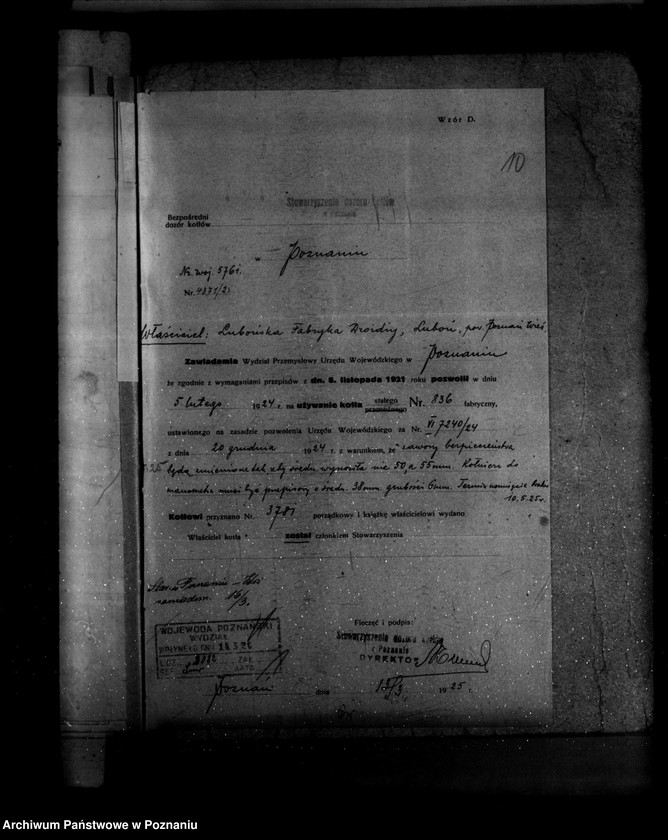 Wzór D.
10
Stowarzyszenie dozoru kotłów
w Poznaniu
Bezpośredni
dozór kotłów
w Poznaniu
Nr. woj. 576 i.
Nr. 4271/2
Właściciel: Lubońska Fabryka Drożdży, Luboń, pow. Poznań
Zawiadamia Wydział Przemysłowy Urzędu Wojewódzkiego w Poznaniu
że zgodnie z wymaganiami przepisów z dn. 8. listopada 1921 roku pozwolił w dniu
5 lutego 1924 r. na używanie kotła stałego Nr. 836 fabryczny,
przenośnego
ustawionego na zasadzie pozwolenia Urzędu Wojewódzkiego za Nr. VI 7240/24
z dnia 20 grudnia 1924 r. z warunkiem, że zawory bezpieczeństwa
będą zmienione tak, aby średn. wynosiła nie 50 a 55 mm. Kołnierz do
manometru musi być przepisowy o średn. 38 mm. grubości 6 mm. Termin
10.5.25 r.
Kotłowi przyznano Nr. 3781 porządkowy i książkę właścicielowi wydano
Właściciel kotła został członkiem Stowarzyszenia
15/3.
WOJEWODA POZNAŃSKI
WYDZIAŁ
WPŁYNĘŁO DNIA
L.DZ.
ZAŁ.
Pieczęć i podpis:
Stowarzyszenie dozoru kotłów
w Poznaniu
DYREKTOR
Poznań dnia 13/3 1925 r.
Archiwum Państwowe w Poznaniu